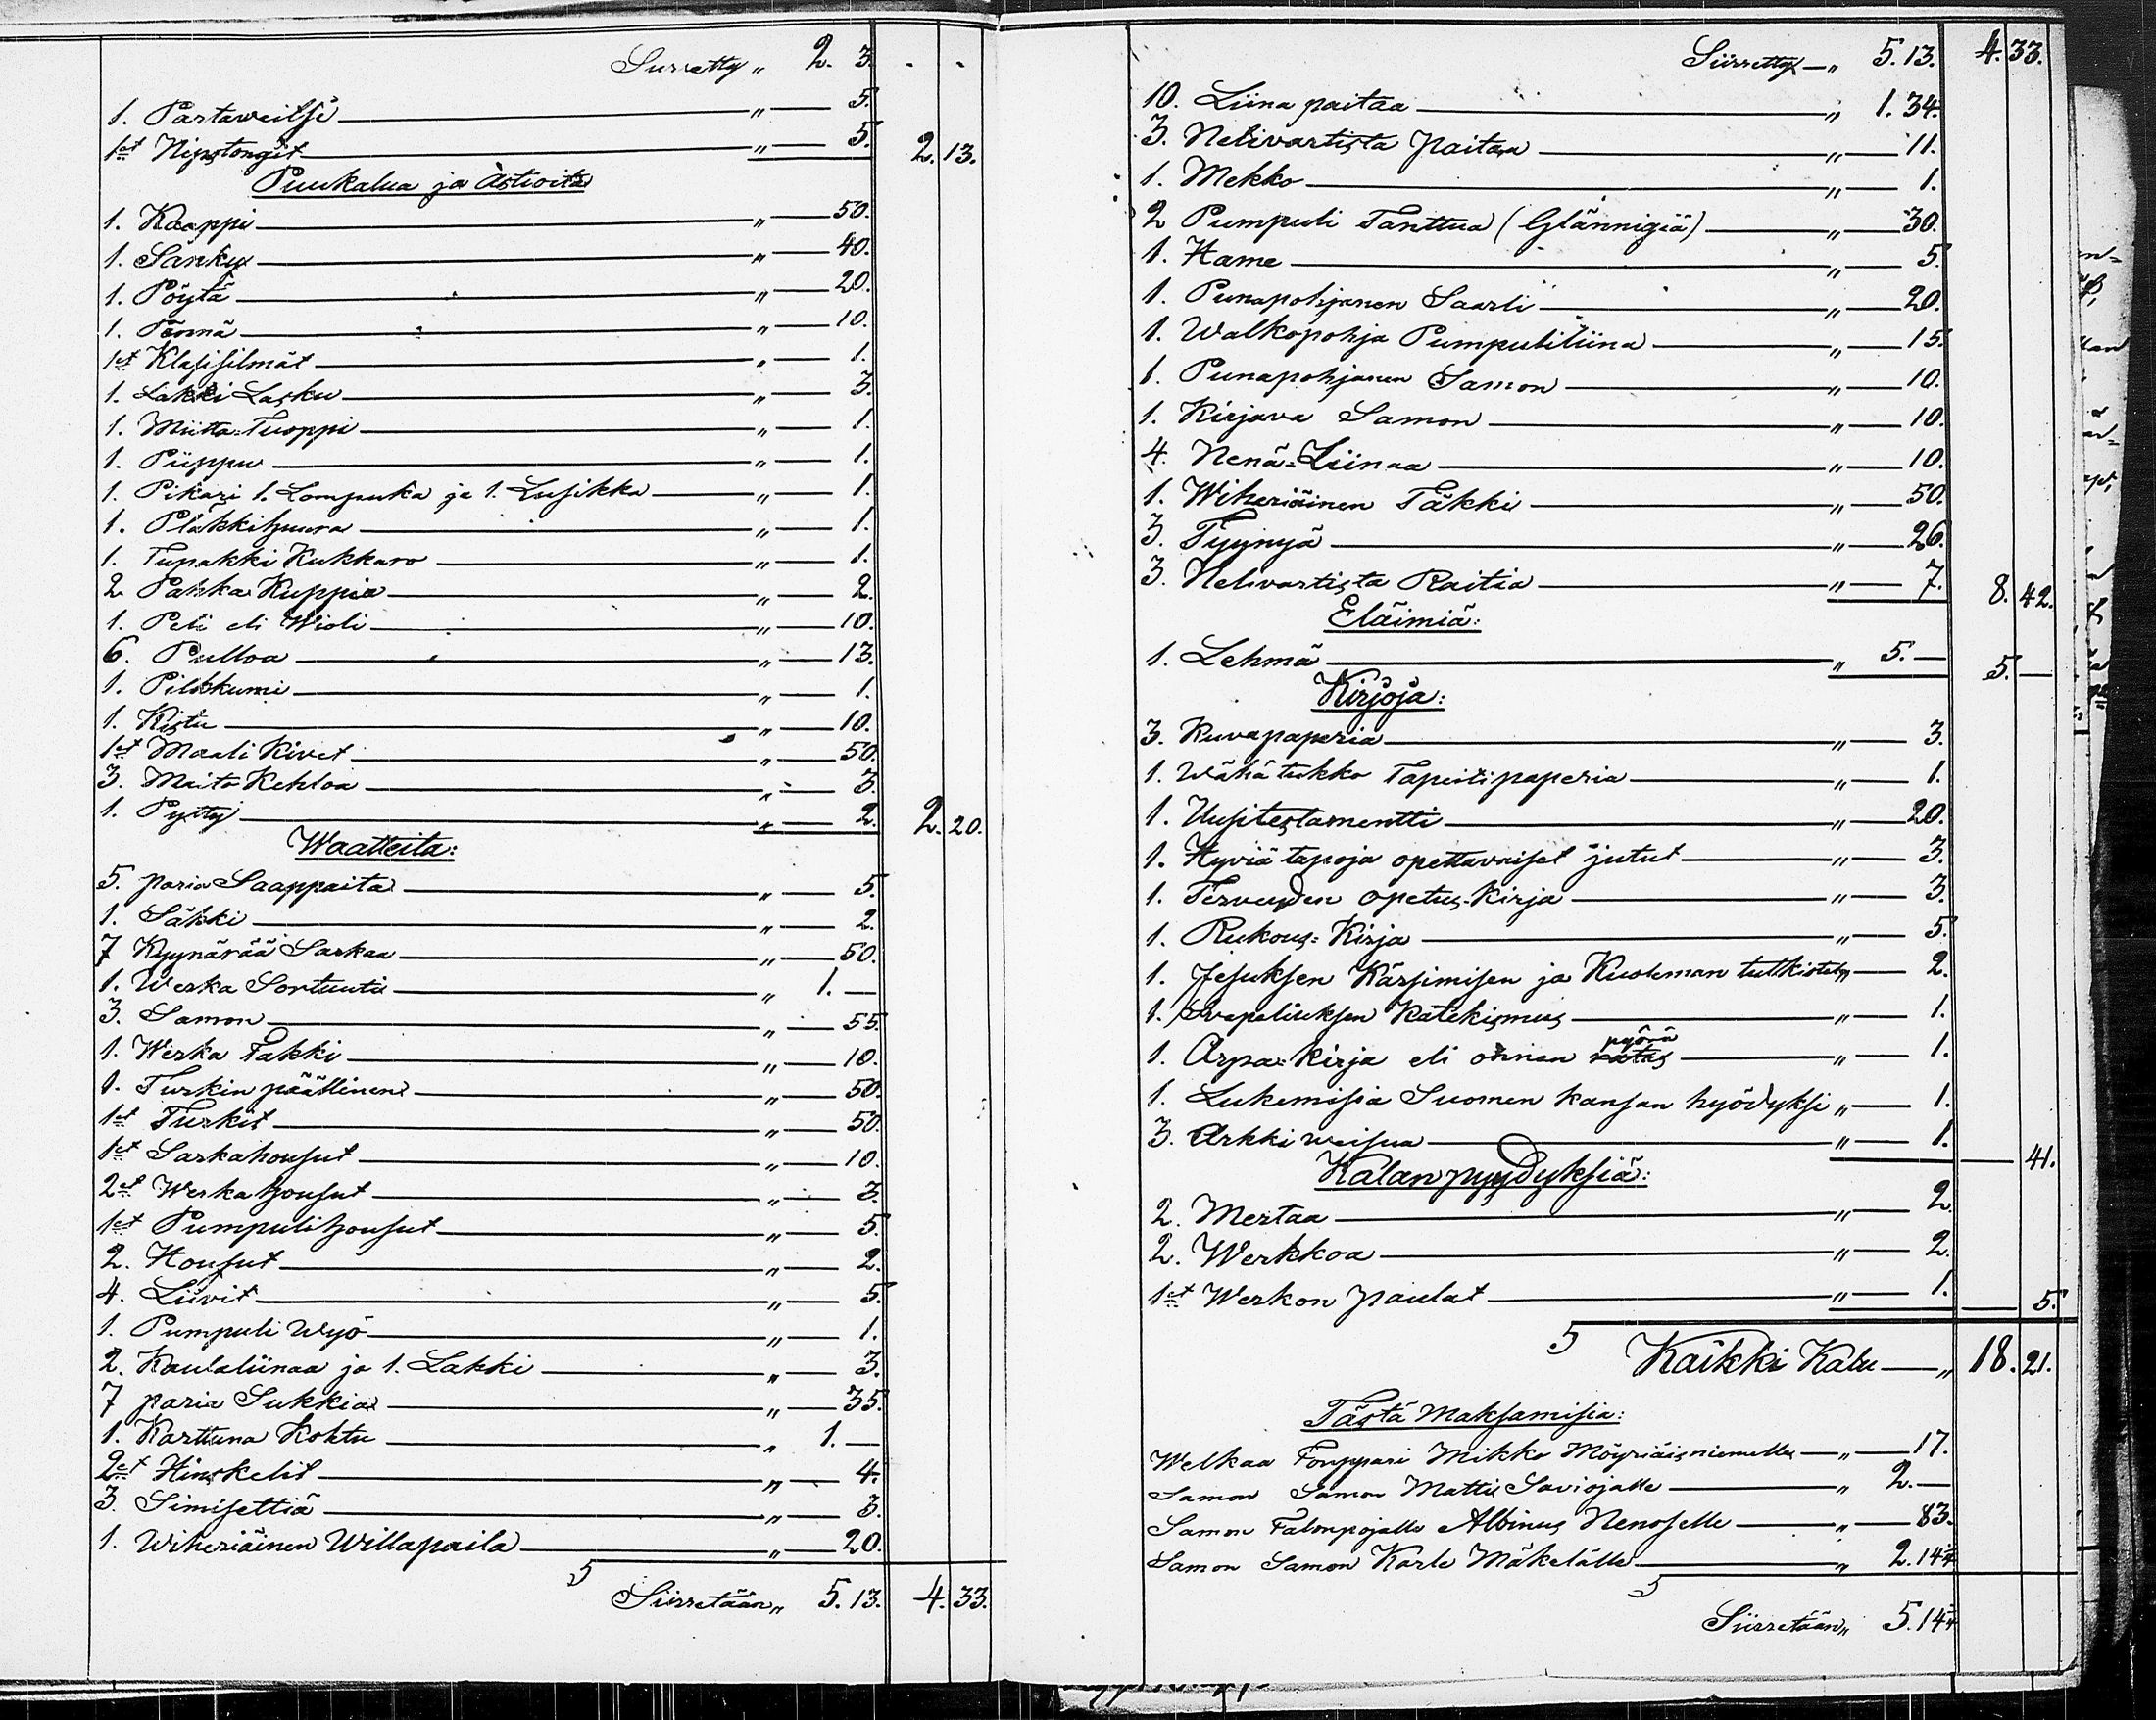 Siirretty „ 2. 3. - -
1. Partaveitsi „ — 5.
1et Nipstongit „ — 5. 2. 13.
Puukalua ja Astioita
1. Kaappi „ — 50.
1. Sänky „ — 40.
1. Pöytä „ — 20.
1. „ — 10.
1et Klasisilmät „ — 1.
1. Lakki Lasku „ — 3.
1. Miitta=Tuoppi „ — 1.
1. Piippu „ — 1.
1. Pikari 1. Lompuka ja 1. Lusikka „ — 1.
1. „ — 1.
1. Tupakki Kukkaro „ — 1.
2. Pahka Kuppia „ — 2.
1. Peli eli Wioli „ — 10.
6. Pulloa „ — 13.
1. Pilkkumi „ — 1.
1. Kistu „ — 10.
1et Maali Kivet „ — 50.
3. Maito Kehloa „ — 3.
1. Pytty „ — 2. 2. 20.
Waatteita:
5. paria Saappaita „ — 5.
1. Säkki „ — 2.
7 Kyynärää Sarkaa „ — 50.
1. Werka Sortuuti „ 1. —
3. Samon „ — 55.
1. Werka Takki „ — 10.
1. Turkin päällinen „ — 50.
1et Turkit „ — 50.
1et Sarkahousut „ — 10.
2et Werka housut „ — 3.
1et Pumpuli housut „ — 5.
2. Housut „ — 2.
4. Liivit „ — 5.
1. Pumpuli Wyö „ — 1.
2. Kaulaliinaa ja 1. Lakki „ — 3.
7 paria Sukkia „ — 35.
1. Karttuna Kohtu „ 1. —
2et Hinskelit „ — 4.
3. Simisettiä „ — 3.
1. Wiheriäinen Willapaila „ — 20.
Siirretään „ 5. 13. 4. 33.
Siirretty — „ 5. 13. 4. 33.
10. Liina paitaa „ 1. 34.
3. Nelivartista paitaa „ — 11.
1. Mekko „ — 1.
2 Pumpuli Tanttua (Glännigiä) „ — 30.
1. Hame „ — 5.
1. Punapohjanen Saarli „ — 20.
1. Walkopohja Pumpuliliina „ — 15.
1. Punapohjanen Samon „ — 10.
1. Kirjava Samon „ — 10.
4. Nenä=Liinaa „ — 10.
1. Wiheriäinen Täkki „ — 50.
3. Tyynyä „ — 26.
3. Nelivartista Raitia „ — 7. 8. 42.
Eläimiä:
1. Lehmä „ 5. — 5. —
Kirjoja:
3. Kuvapaperia „ — 3.
1. Wähä tukko Tapeitipaperia „ — 1.
1. Uusitestamentti „ — 20.
1. Hyviä tapoja opettavaiset jutut „ — 3.
1. Terveyden opetus-Kirja „ — 3.
1. Rukous=Kirja „ — 5.
1. Jesuksen Kärsimisen ja Kuoleman tutkistely „ — 2.
1. Svepeliuksen Katekismus „ — 1.
1. Arpa=Kirja eli onnen ratas pyörä „ — 1.
1. Lukemisia Suomen kansan hyödyksi „ — 1.
3. Arkki weisua „ — 1. — 41.
Kalanpyydyksiä:
2. Mertaa „ — 2.
2. Werkkoa „ — 2.
1et Werkon paulat „ — 1. — 5.
Kaikki Kalu — „ 18. 21.
Tästä Maksamisia:
Welkaa Torppari Mikko Möyriäisniemelle — „ — 17.
Samon Samon Matti Saviojalle „ 2. —
Samon Talonpojalle Albinus Nenoselle „ — 83.
Samon Samon Karle Mäkelälle „ 2. 144
Siirretään „ 5. 144